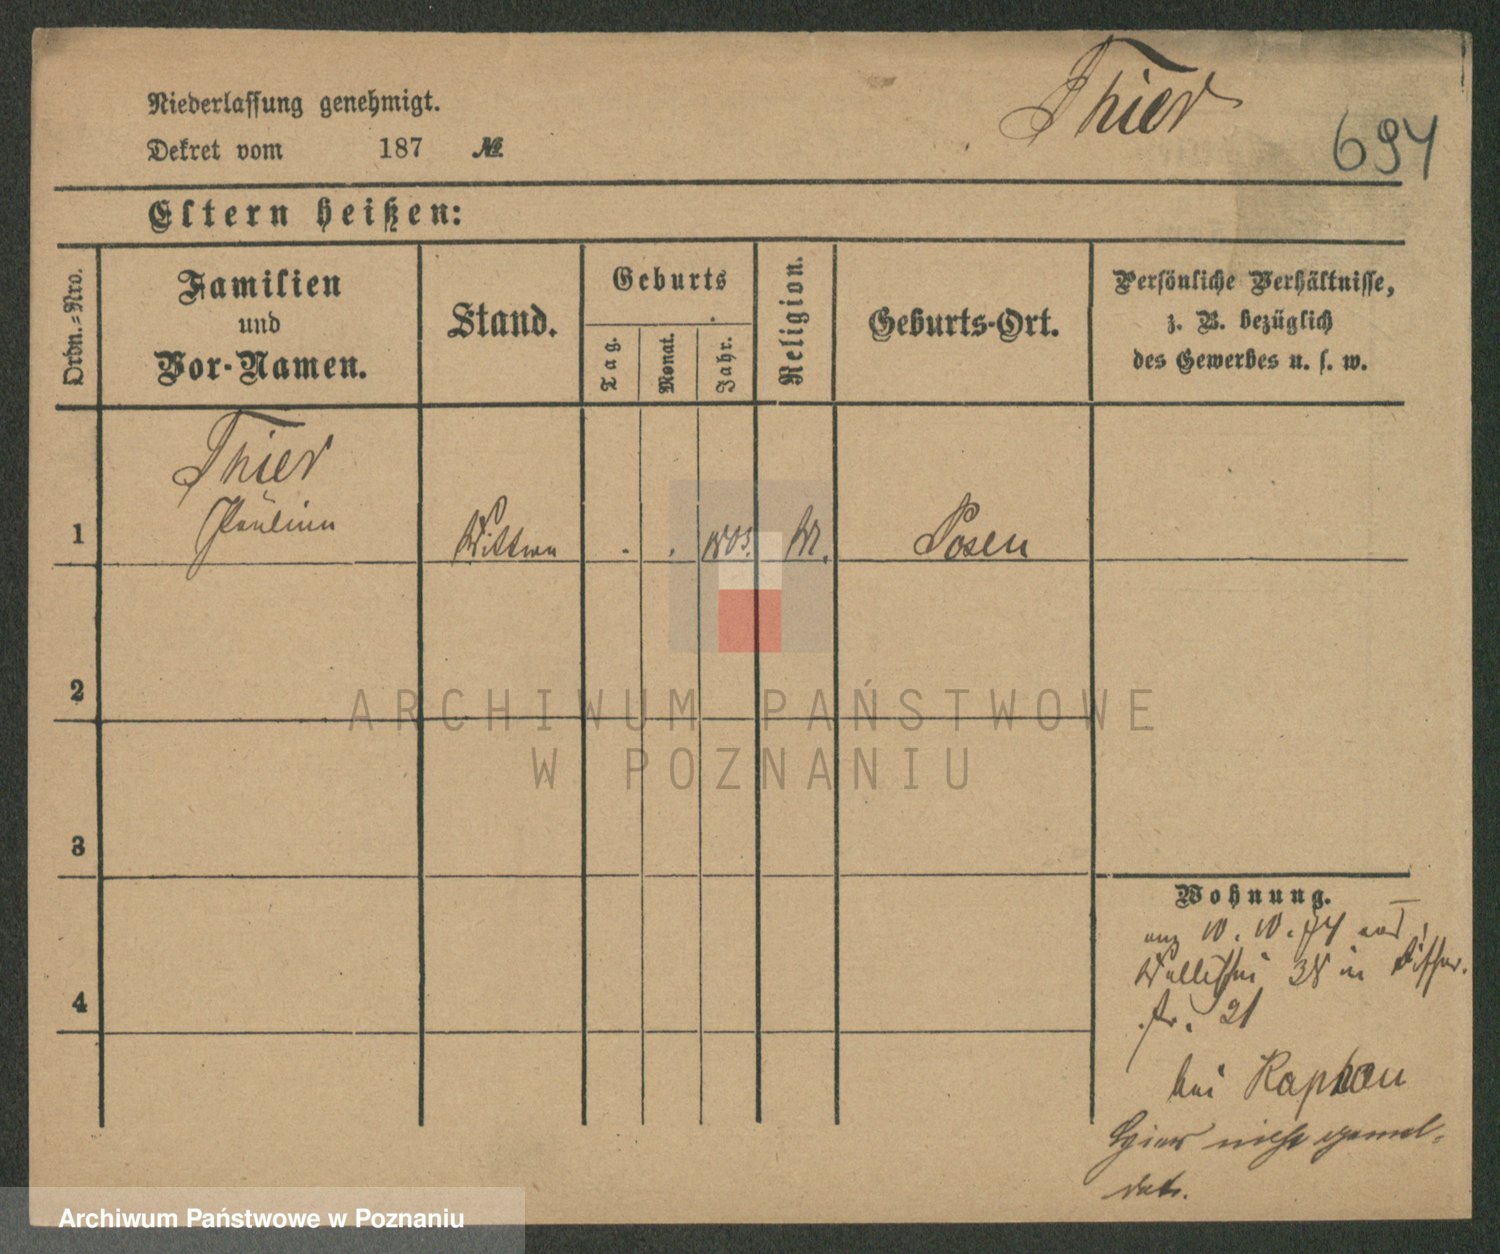 Thier
694
Niederlassung genehmigt.
Dekret vom 187 №
Eltern heißen:
Ordn.-Nro.
Familien
und
Vor-Namen.
Stand.
Geburts
Tag.
Monat.
Jahr.
Religion.
Geburts-Ort.
Persönliche Verhältnisse,
z. B. bezüglich
des Gewerbes u. s. w.
Thier
1 Pauline Wittwe . . 1803. Posen
2
3
4
ARCHIWUM PAŃSTWOWE
W POZNANIU
Wohnung.
74
Wallischei 38 in
str. 21
bei
nicht gemel-
det.
Archiwum Państwowe w Poznaniu